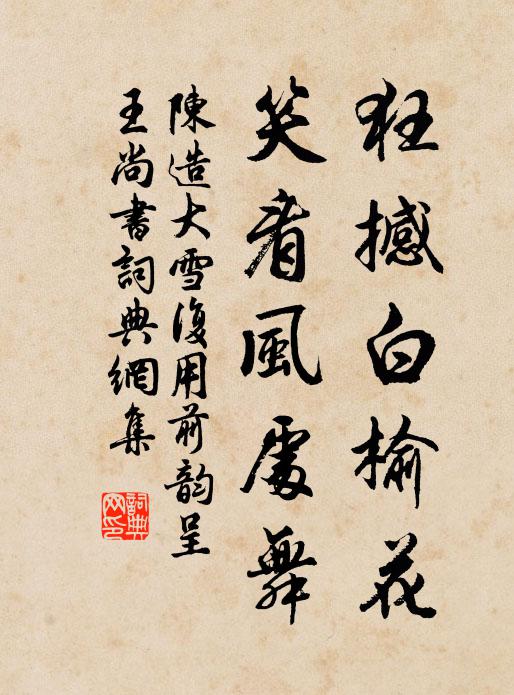 狂撼白榆花
笑看風處舞
陳造大雪復用前韵呈
王尚書詞典網集
詞典
网印